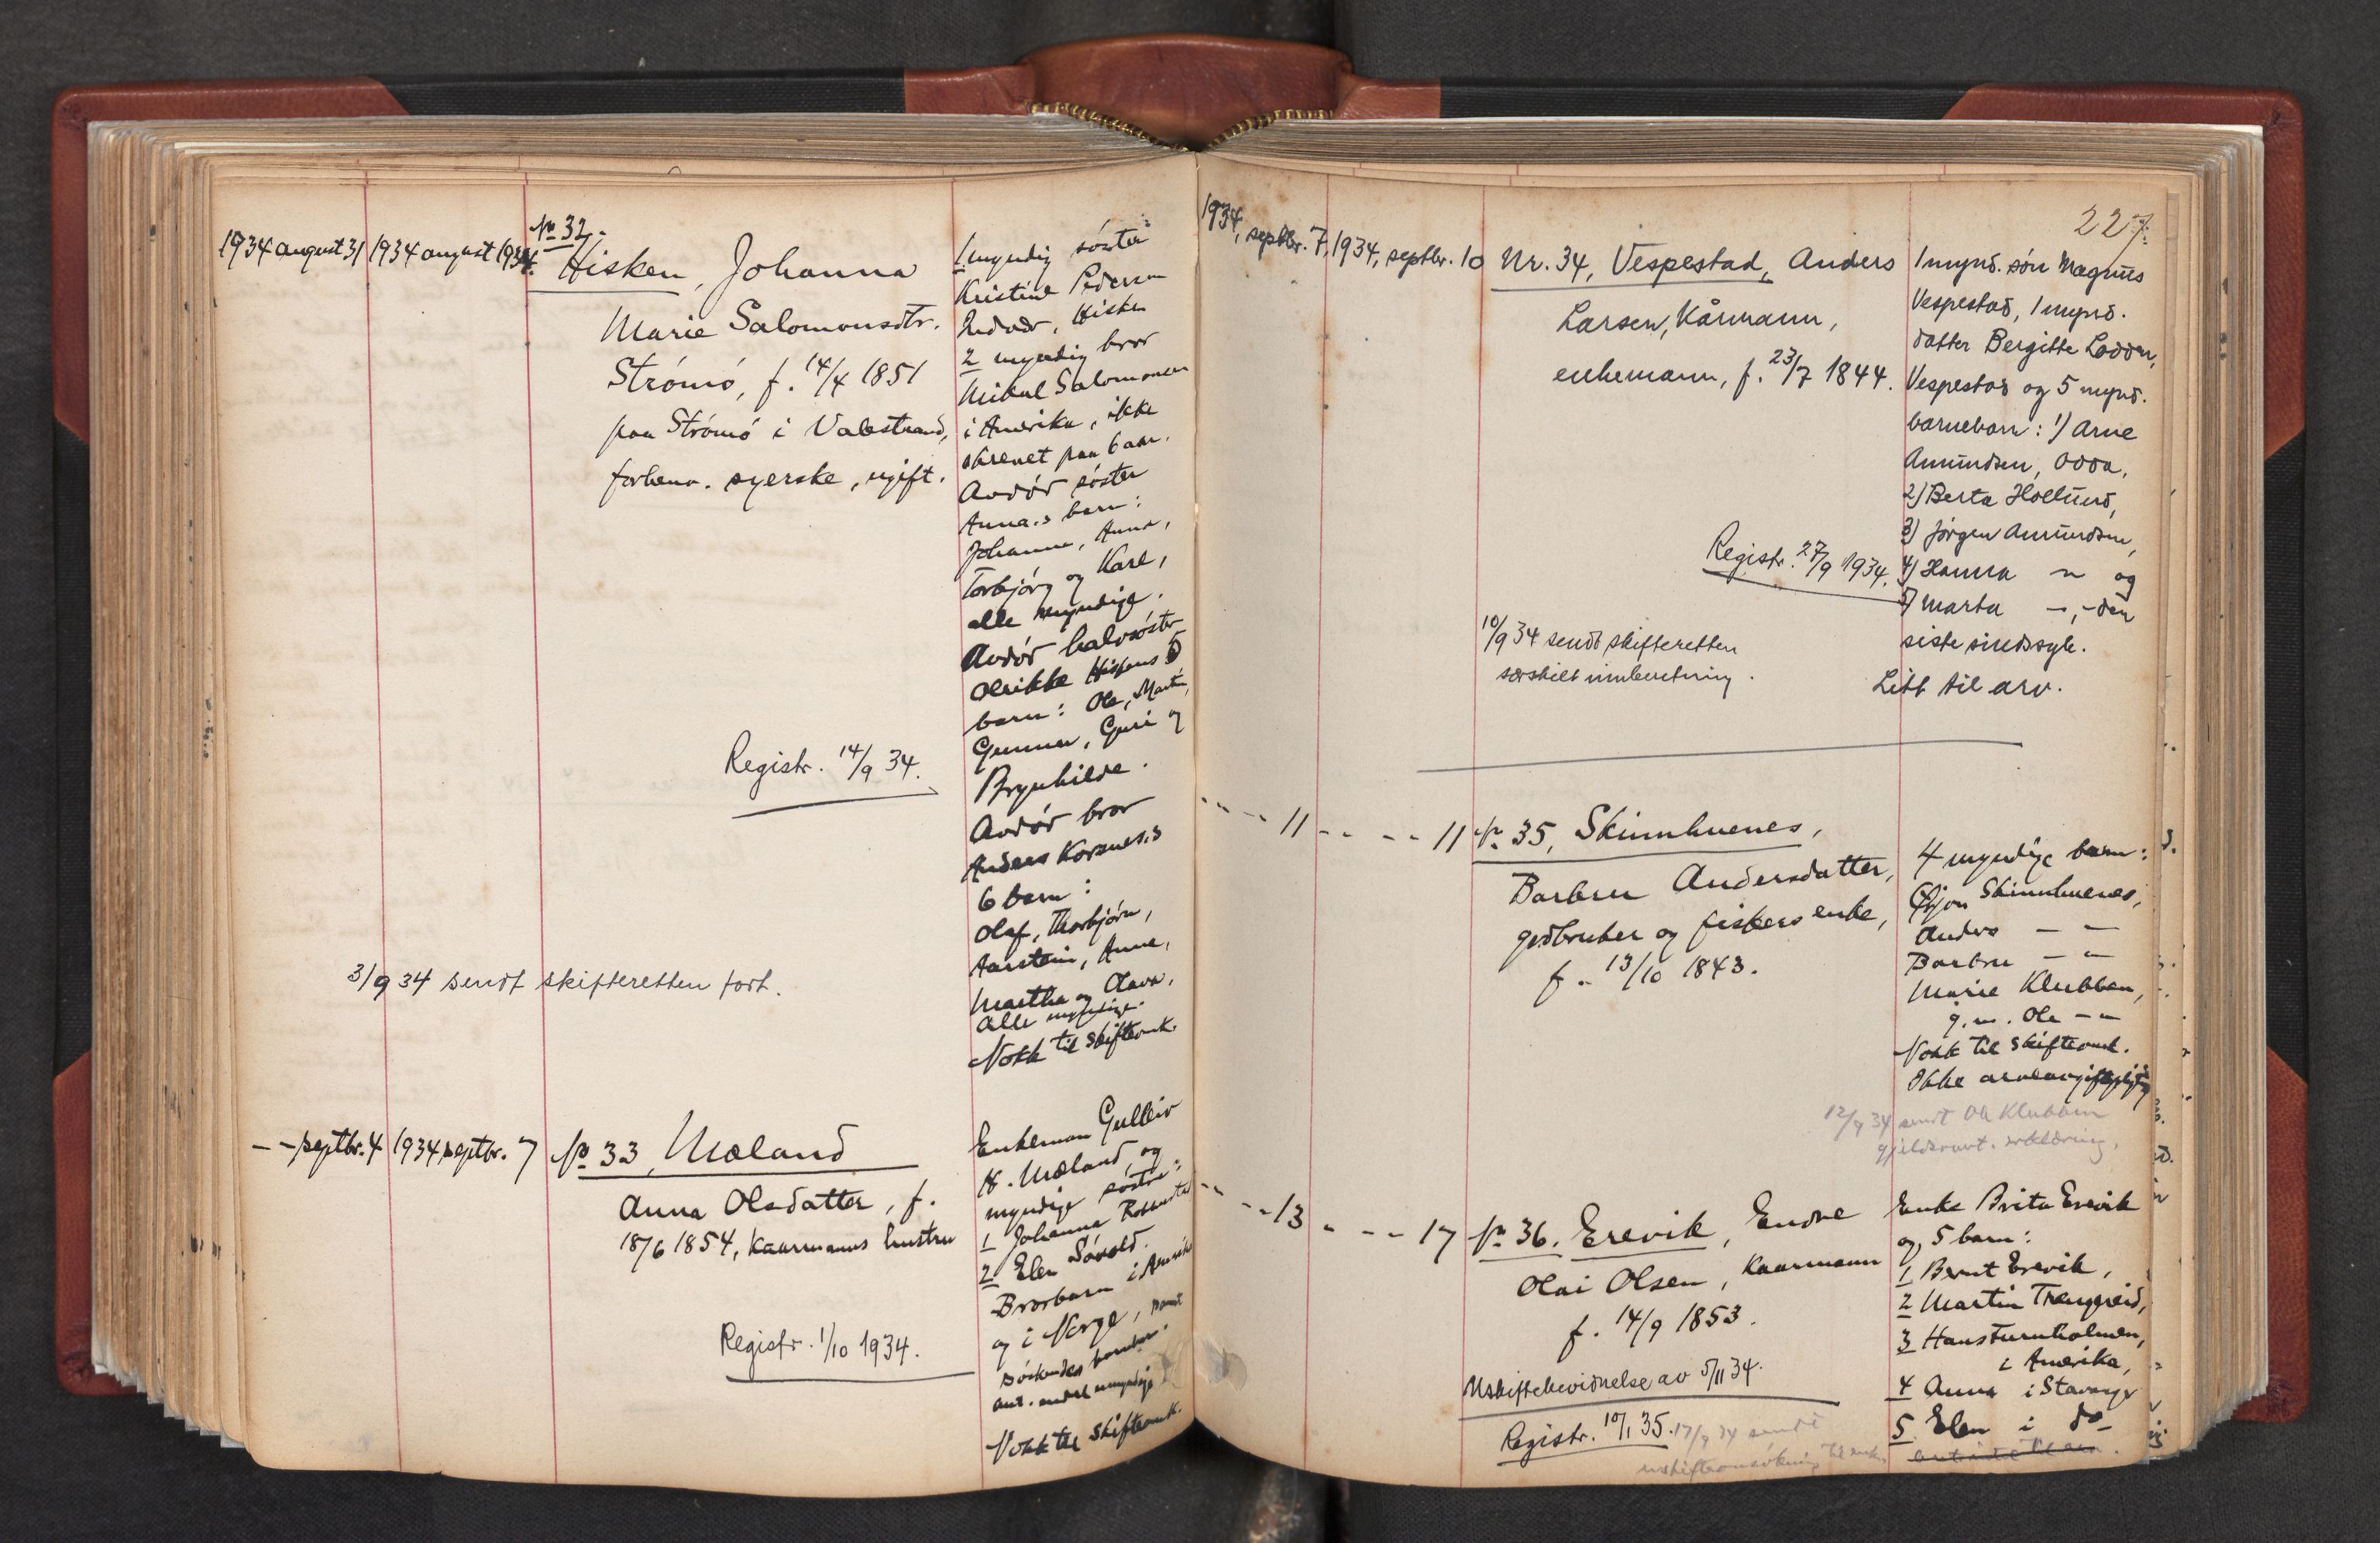 No 32.
1934 august 31 1934 august 1934. Hisken, Johanna
Marie Salomonsdtr.
Strømø, f. 14/4 1851
paa Strømø i Valestrand,
forhenv. syerske, ugift.
1 myndig søster
Kristine Pedersen
Indvær, Hisken
2 myndig bror
Mikal Salomonsen
i Amerika, ikke
skrevet paa 6 aar.
Avdød søster
Anna.s barn:
Johanna, Anna,
Torbjørg og Karl,
alle myndige.
Avdød halvsøster
Olrikke Hiskens 5
barn: Ole, Martin,
Gunnar, Guri og
Brynhilde.
Avdød bror
Anders Korsnes.s
6 barn:
Olaf, Thorbjørn,
Aarstein, Anna,
Martha og Olava.
Alle myndige.
Nokk til skifteomk.
Registr. 14/9 34.
3/9 34 sendt skifteretten fort.
- - septbr. 4 1934 septbr. 7 No 33, Mæland
Anna Olsdatter, f.
18/6 1854, kaarmanns hustru
Enkeman Gulleiv
K. Mæland og
myndige søstre:
1 Johanna
2 Elen Søvold.
Brorbarn i Amerika
og i Norge, samt
søskendes barnebarn.
ant. andel myndige
Nokk til skifteomk.
Registr. 1/10 1934.
227.
1934, septbr. 7. 1934, septbr. 10 Nr. 34, Vespestad, Anders
Larsen, Kårmann,
enkemann, f. 23/7 1844.
1 mynd. søn Magnus
Vespestad, 1 mynd.
datter Bergitte Lodden,
Vespestad og 5 mynd.
barnebarn: 1) Arne
Amundsen, Odda,
2) Berta Hollund,
3) Jørgen Amundsen,
4) Hanna — " — og
5) Marta — " — den
siste sindssyk.
Litt til arv.
Registr. 27/9 1934.
10/9 34 sendt skifteretten
særskilt innberetning.
- - - 11 - - - - 11 No 35, Skimhuenes,
Barbru Andersdatter,
grdbruker og fiskers enke,
f. 13/10 1843.
4 myndige barn:
Ørjan Skimhuenes,
Anders — " —
Barbru — " —
Marie Klubben,
g. m. Ole — " —
Nokk til skifteomk.
Ikke arveavgiftspligtig
12/9 34 sendt Ole Klubben
gjeldsovert. erklæring.
- - - 13 - - - 17 No 36. Erevik, Endre
Olai Olsen, Kaarmann
f. 14/9 1853.
Enke Brita Erevik
og 5 barn:
1 Bernt Erevik,
2 Martin Trengereid,
3 Hans Turnholmen,
i Amerika,
4 Anna i Stavanger
5 Elen i do
Uskiftebevidnelse av 5/11 34.
Registr. 10/1 35. 17/9 34 sendt
uskifteansøkning til enken